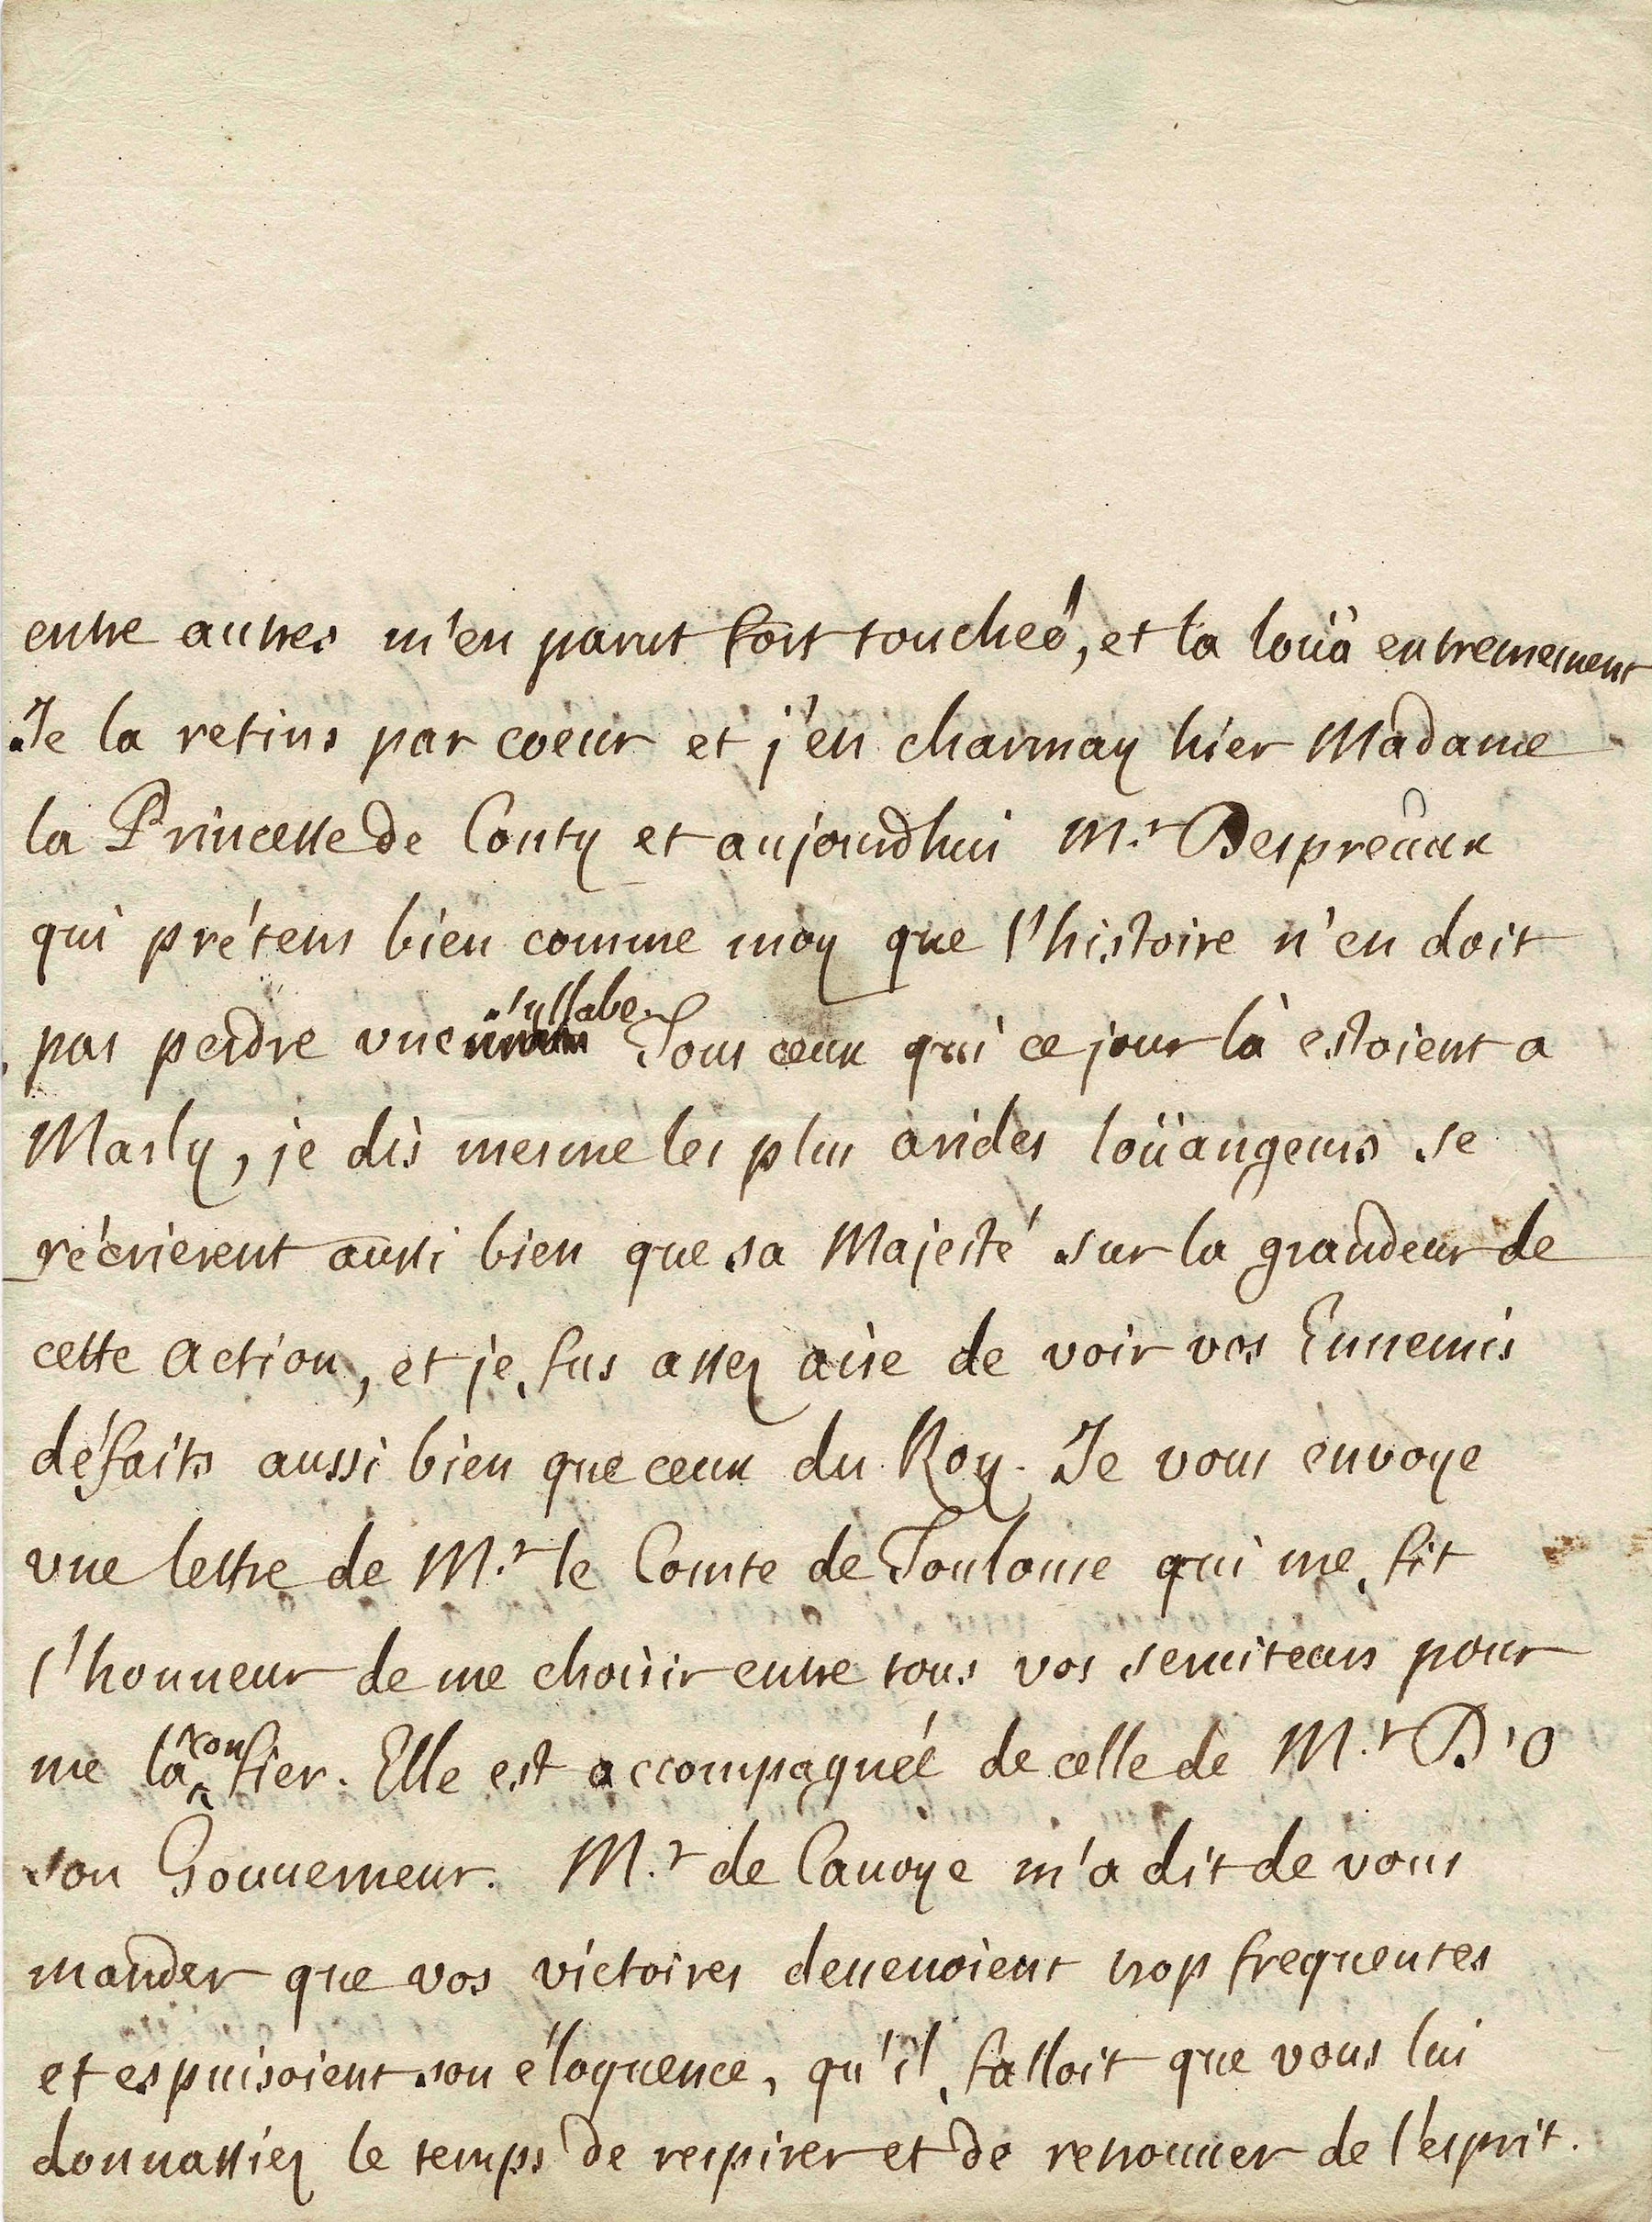 entre autres m'en parut fort touchée, et la loüa extremement
Je la retins par coeur et j'en charmay hier Madame
la Princesse de Conty et aujourdhui Mr. Despreaux
qui prétens bien comme moy que l'histoire n'en doit
pas perdre vne syllabe. Tous ceux qui ce jour là estoient a
Marly, je dis mesme les plus arides loüangeurs se
récrierent aussi bien que sa Majesté sur la grandeur de
cette action, et je fus assez aise de voir vos Ennemis
défaits aussi bien que ceux du Roy. Je vous envoye
vne lettre de Mr. le Comte de Toulouse qui me fit
l'honneur de me choisir entre tous vos seruiteurs pour
me la confier. Elle est accompagnée de celle de Mr. D'O
son Gouuerneur. Mr. de Cauoye m'a dit de vous
mander que vos victoires deuenoient trop frequentes
et espuisoient son éloquence, qu'il falloit que vous lui
donnassiez le temps de respirer et de retrouuer de l'esprit.